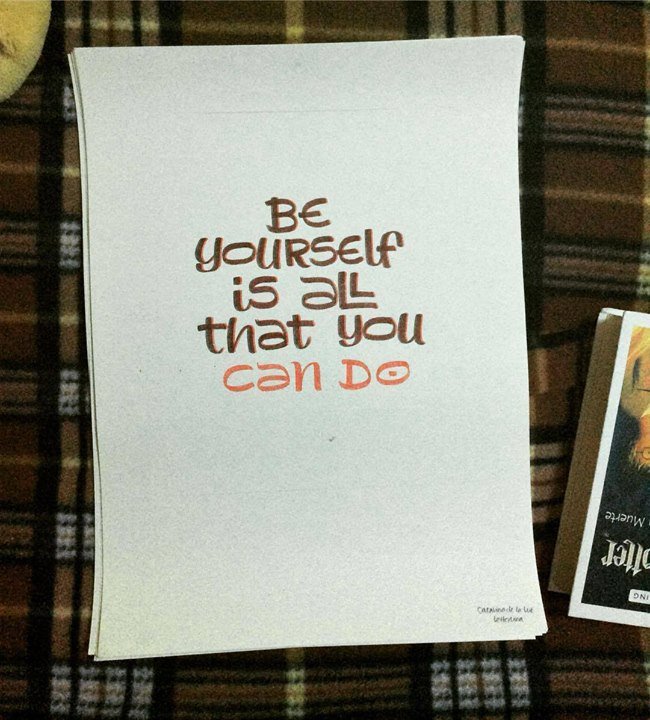 BE
YOURSELF
is all
that you
can Do
Catalina de la luz
Muerte
otter
ING